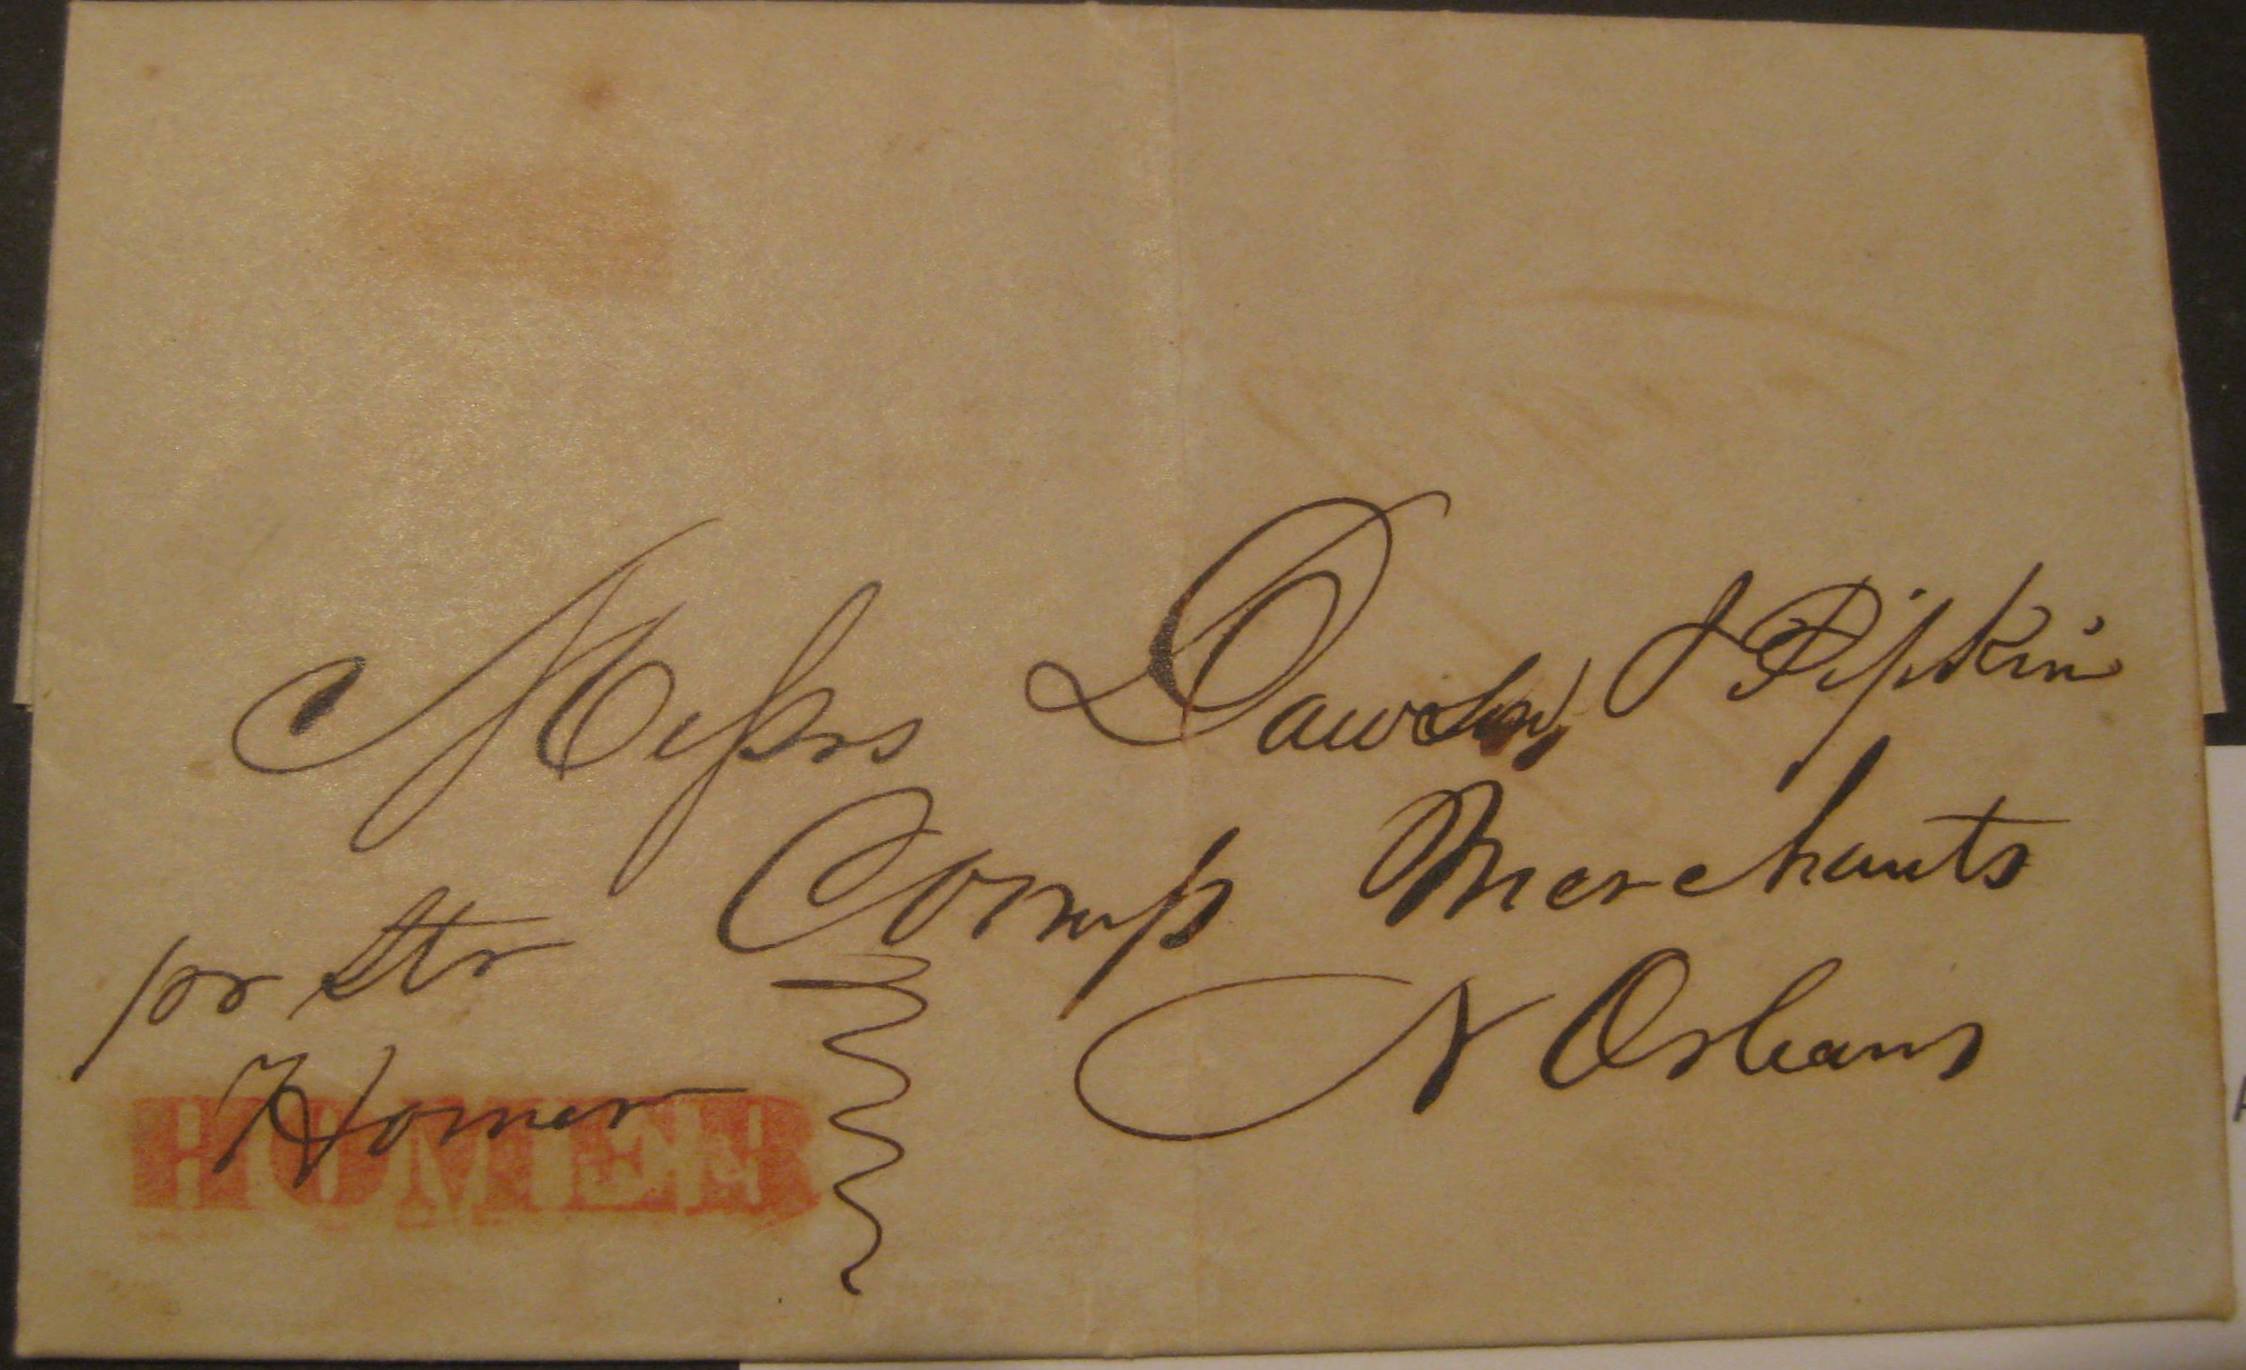 Messrs Dawson & Pipkin
Comp Merchants
N Orleans
pr Str
Homer
HOMER